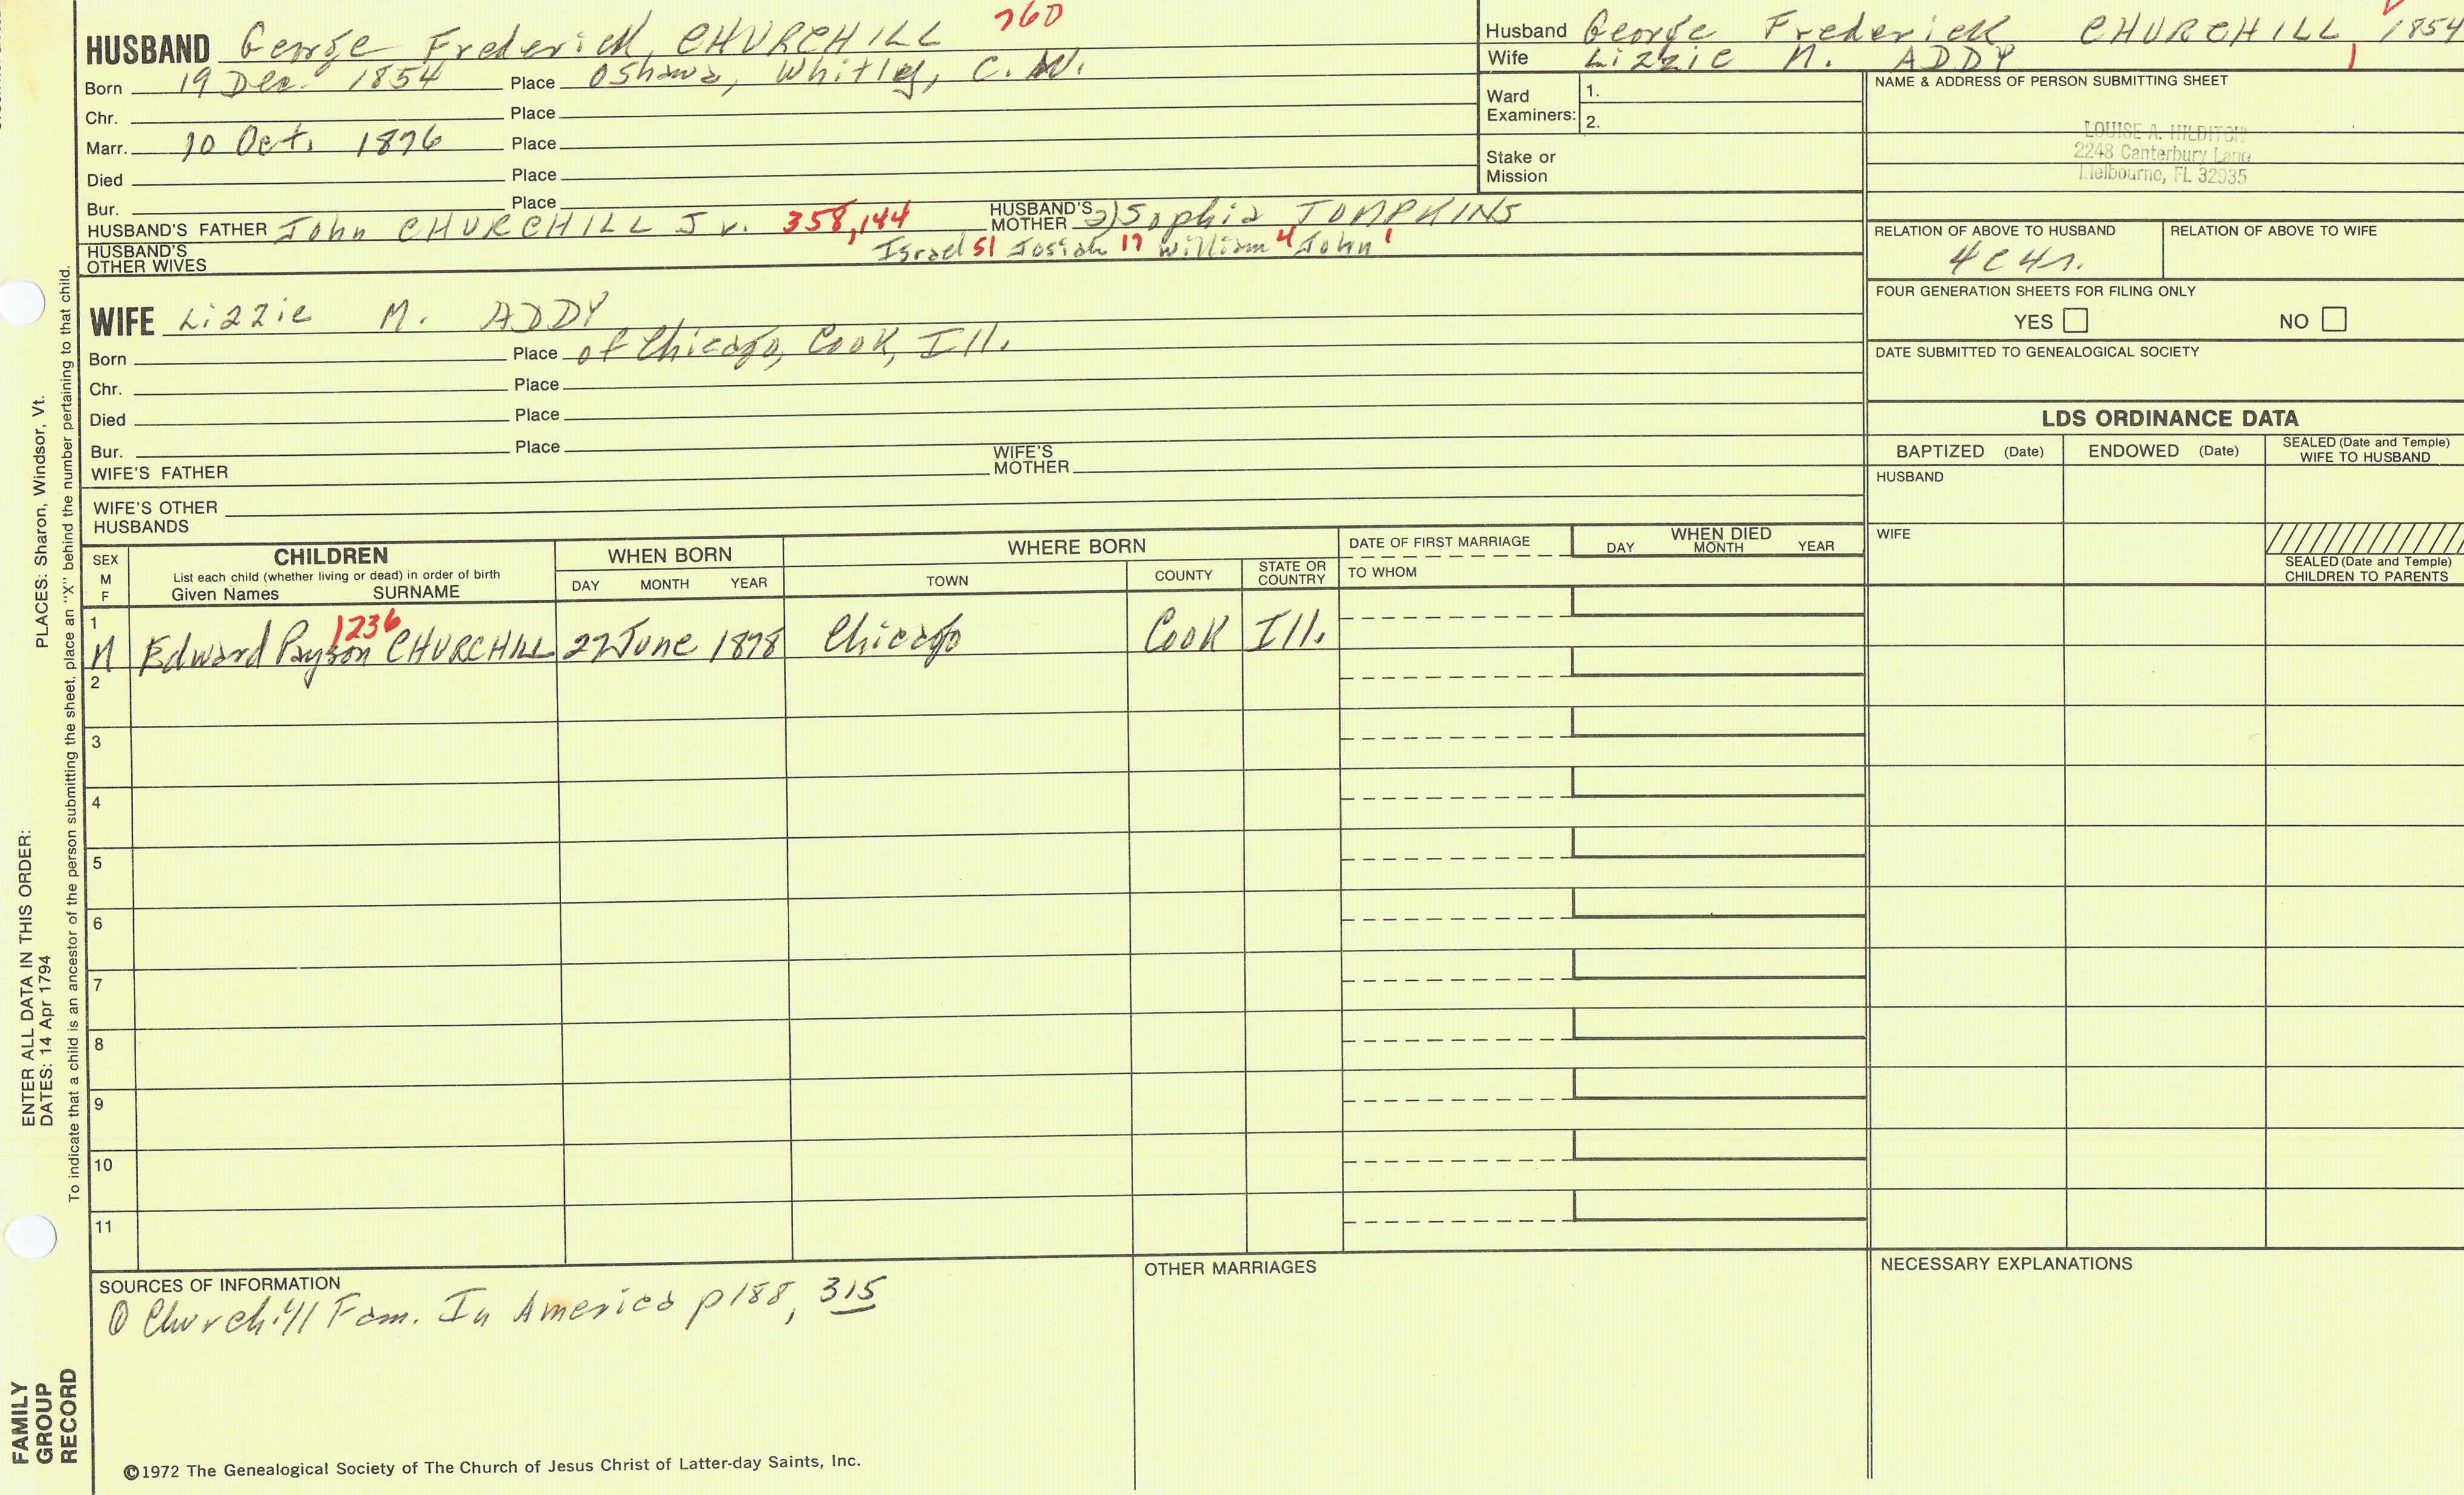 HUSBAND George Frederick CHURCHILL 760
Born 19 Dec. 1854 Place Oshawa, Whitley, C.W.
Chr. Place
Marr. 10 Oct. 1876 Place
Died Place
Bur. Place
HUSBAND'S FATHER John CHURCHILL Jr. 358,144 HUSBAND'S MOTHER 2) Sophia TOMPKINS
HUSBAND'S OTHER WIVES Israel 51 Josiah 17 William 4 John 1
Husband George Frederick CHURCHILL, 1854
Wife Lizzie M. ADDY 1
Ward Examiners: 1.
2.
Stake or Mission
NAME & ADDRESS OF PERSON SUBMITTING SHEET
LOUISE A. HILDITCH
2248 Canterbury Lane
Melbourne, FL 32935
RELATION OF ABOVE TO HUSBAND RELATION OF ABOVE TO WIFE
4C4r.
FOUR GENERATION SHEETS FOR FILING ONLY
YES NO
DATE SUBMITTED TO GENEALOGICAL SOCIETY
WIFE Lizzie M. ADDY
Born Place of Chicago, Cook, Ill.
Chr. Place
Died Place
Bur. Place
WIFE'S FATHER WIFE'S MOTHER
WIFE'S OTHER HUSBANDS
LDS ORDINANCE DATA
BAPTIZED (Date) ENDOWED (Date) SEALED (Date and Temple) WIFE TO HUSBAND
HUSBAND
WIFE
SEALED (Date and Temple) CHILDREN TO PARENTS
SEX M F
CHILDREN
List each child (whether living or dead) in order of birth
Given Names SURNAME
WHEN BORN
DAY MONTH YEAR
WHERE BORN
TOWN COUNTY STATE OR COUNTRY
DATE OF FIRST MARRIAGE
TO WHOM
WHEN DIED
DAY MONTH YEAR
1 M Edward Payson 1236 CHURCHILL 27 June 1878 Chicago Cook Ill.
2
3
4
5
6
7
8
9
10
11
SOURCES OF INFORMATION
① Churchill Fam. In America p188, 315
OTHER MARRIAGES
NECESSARY EXPLANATIONS
©1972 The Genealogical Society of The Church of Jesus Christ of Latter-day Saints, Inc.
FAMILY GROUP RECORD
ENTER ALL DATA IN THIS ORDER:
DATES: 14 Apr 1794
PLACES: Sharon, Windsor, Vt.
To indicate that a child is an ancestor of the person submitting the sheet, place an "X" behind the number pertaining to that child.